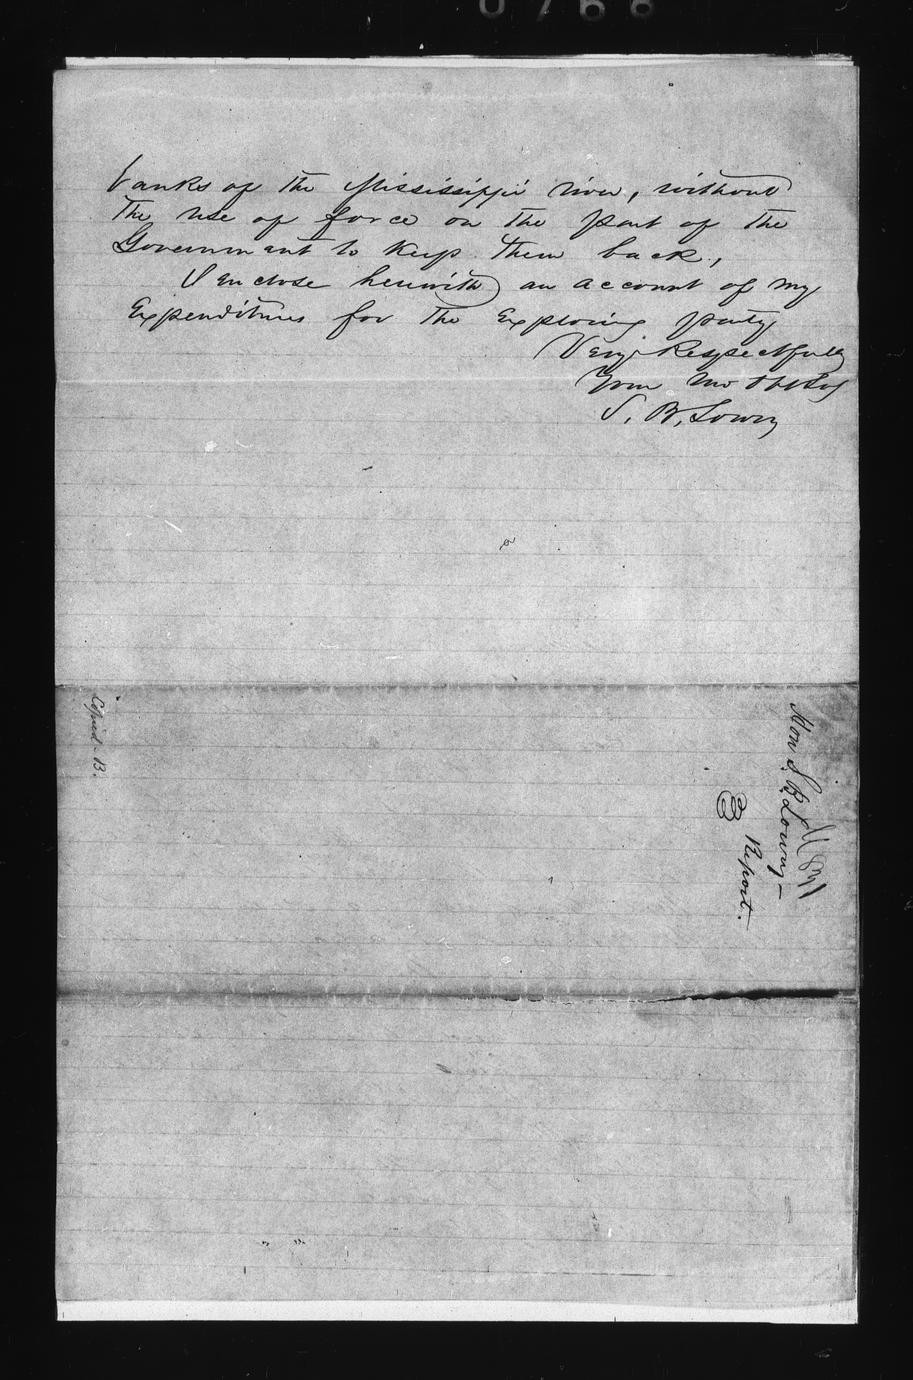 banks of the Mississippi river, without
the use of force on the part of the
Government to keep them back,
I enclose herewith an account of my
Expenditures for the Exploring party
Very Respectfully
Your Mo Obt Svt
S. B. Lowry
Copied. B.
Hon S. B. Lowry —
3
Report.
0766